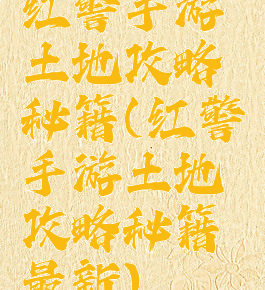 红警手游
土地攻略
秘籍(红警
手游土地
攻略秘籍
最新)